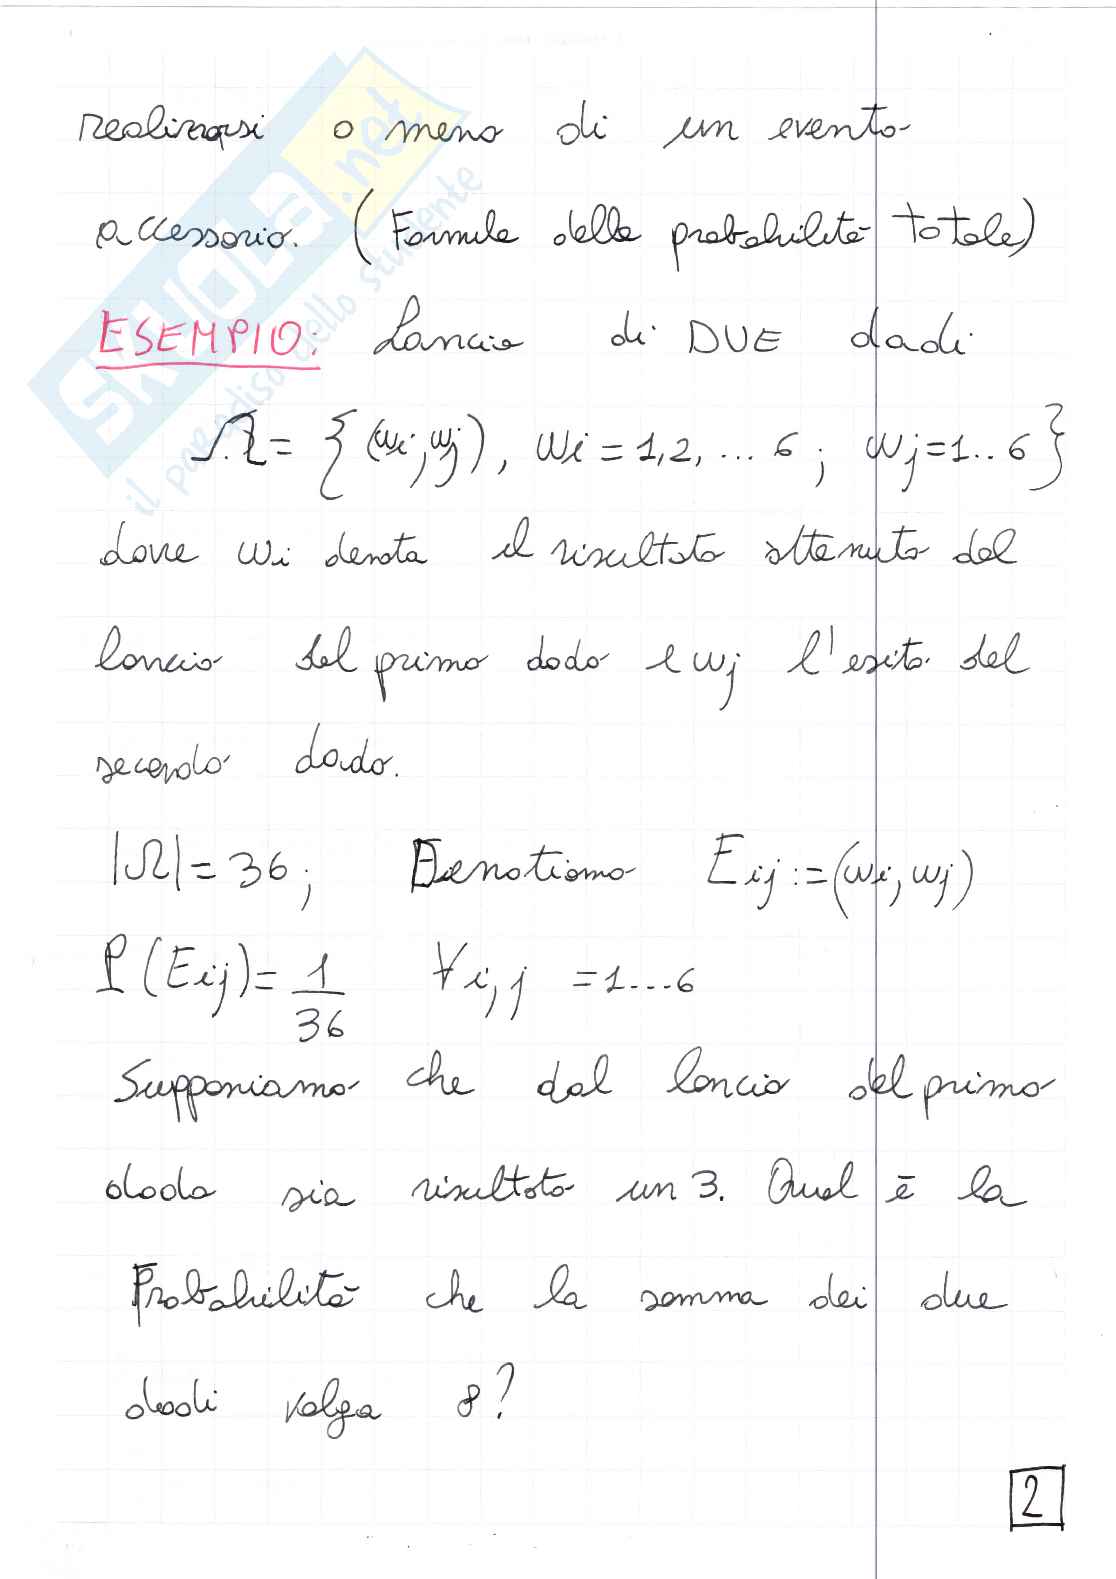 realizzarsi o meno di un evento
accessorio. (Formula delle probabilità totale)
ESEMPIO: Lancio di DUE dadi
Ω = { (wi, wj), wi = 1,2, ... 6 ; wj = 1..6 }
dove wi denota il risultato ottenuto dal
lancio del primo dado e wj l'esito del
secondo dado.
|Ω| = 36 ; Denotiamo Eij := (wi, wj)
P(Eij) = 1/36 ∀ i,j = 1...6
Supponiamo che dal lancio del primo
dado sia risultato un 3. Qual è la
Probabilità che la somma dei due
dadi valga 8?
2
SKUOLA.net
il paradiso dello studente